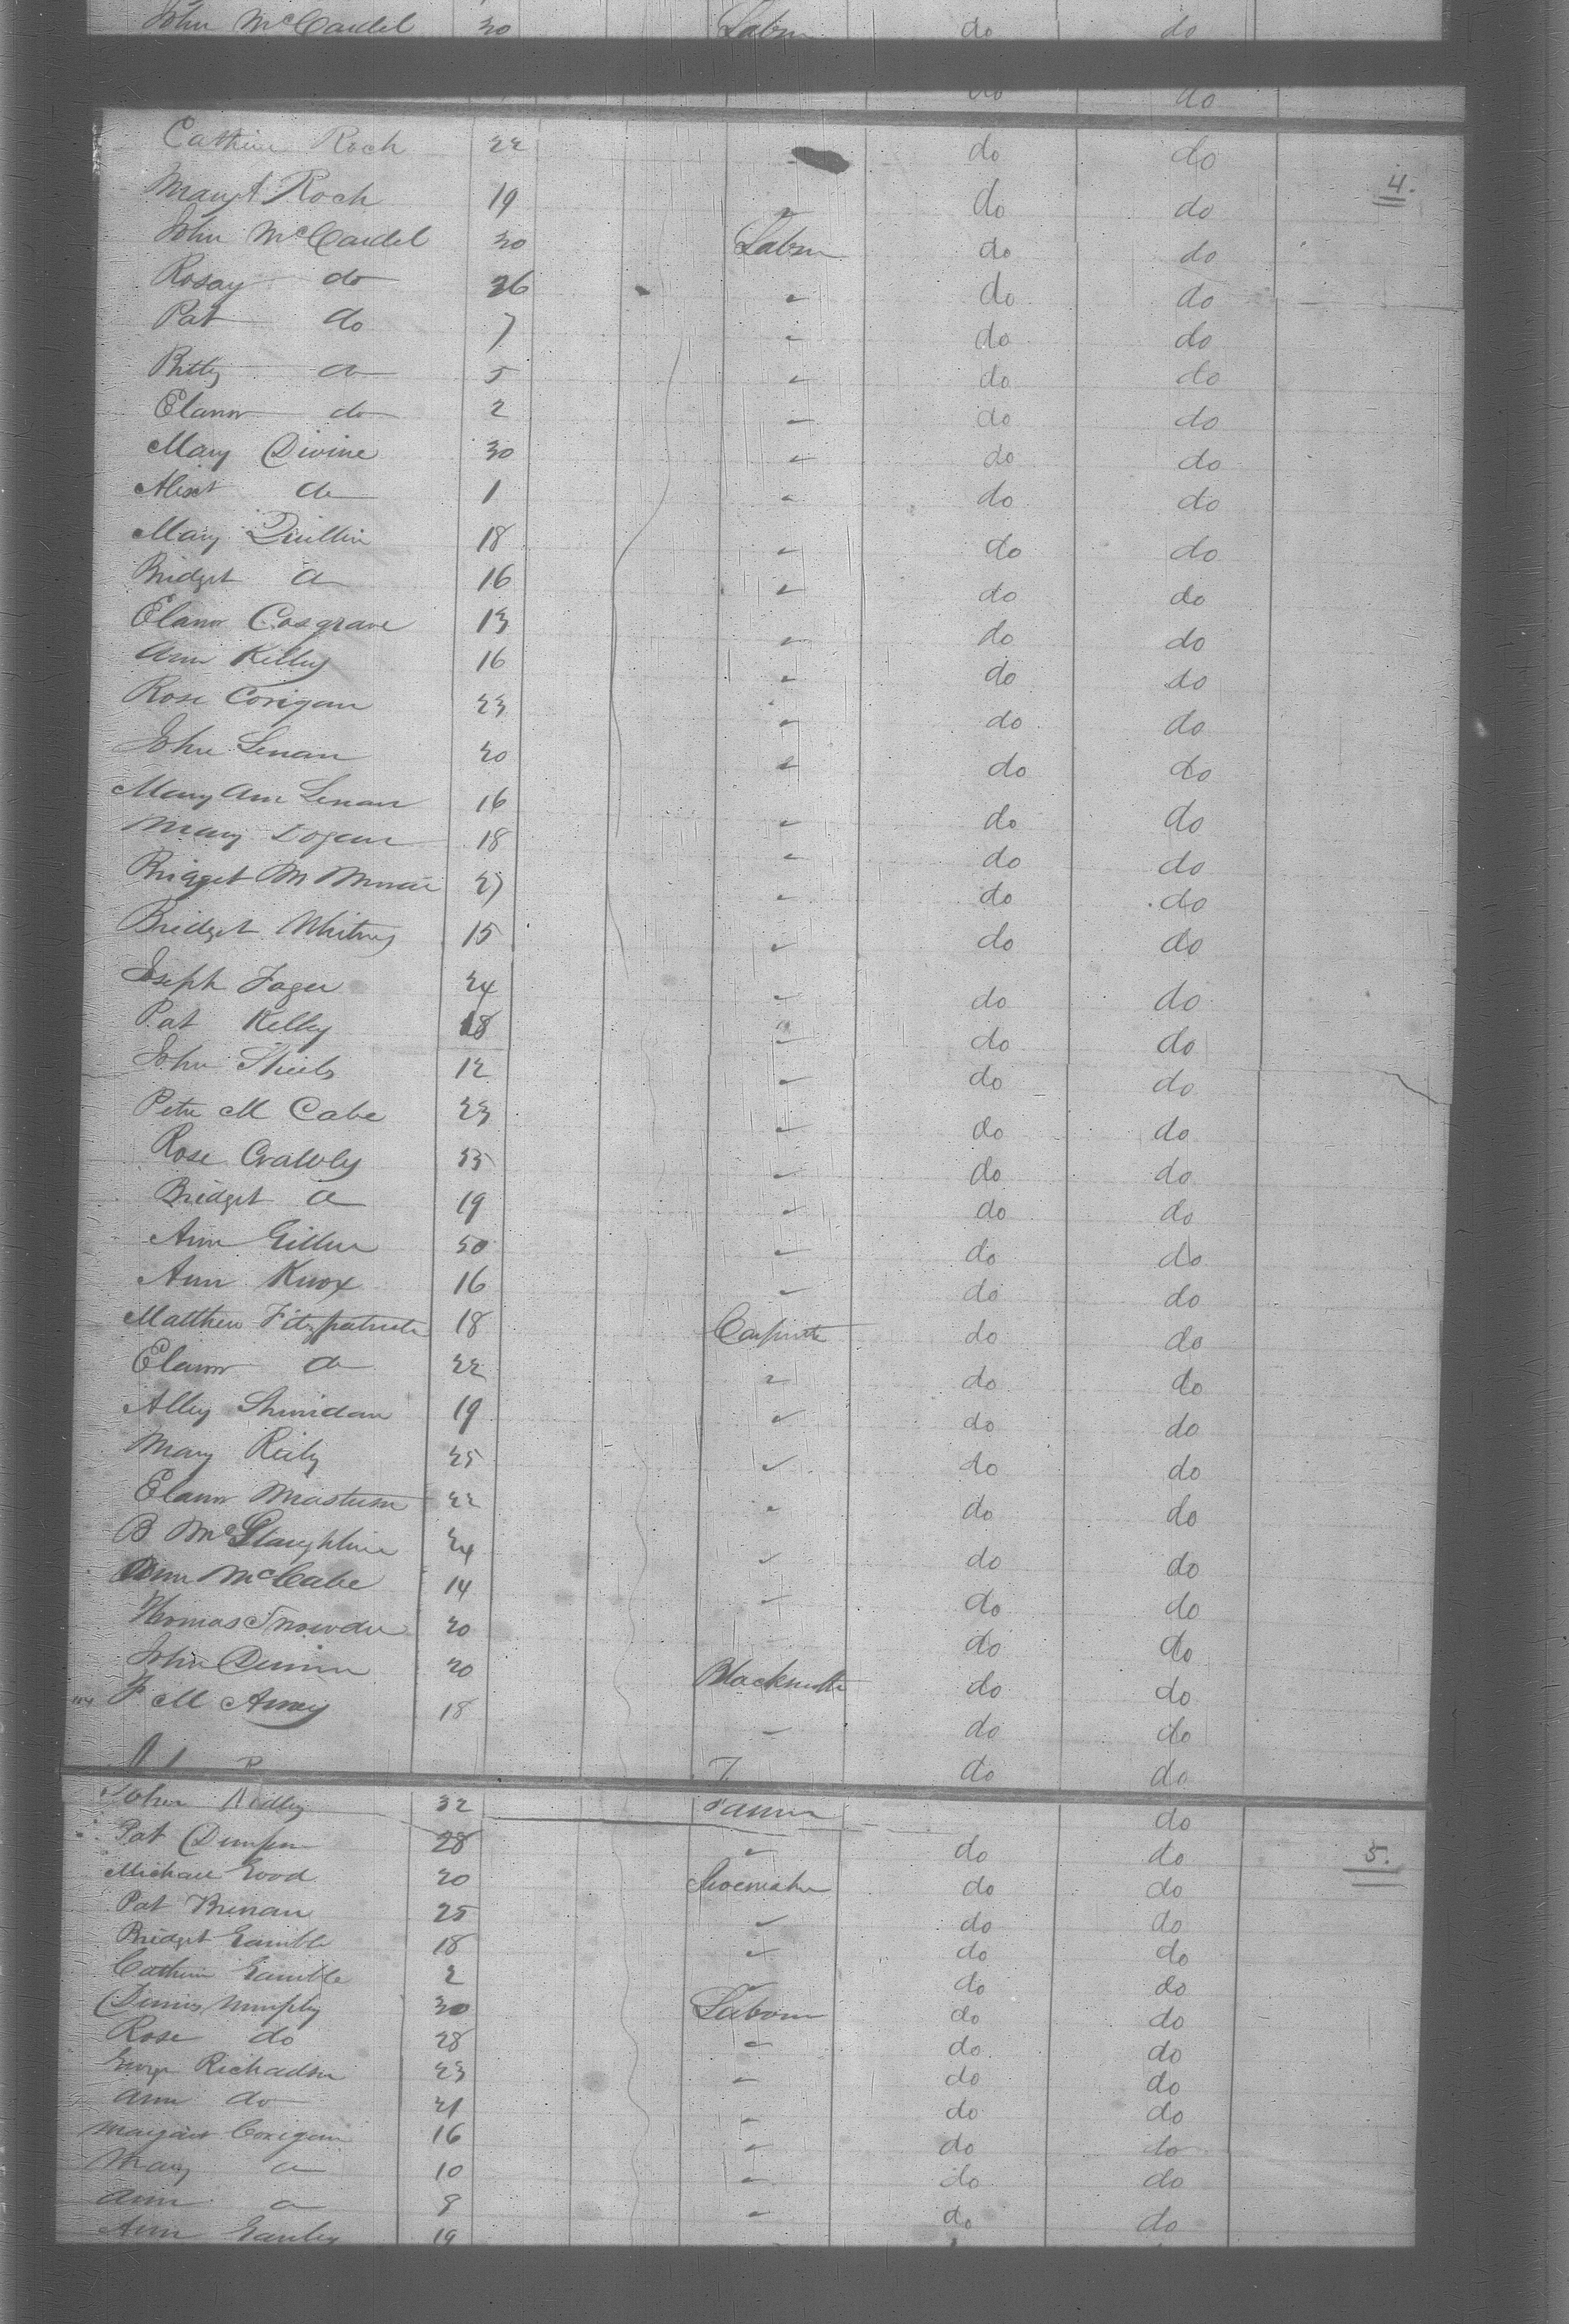 John McCardel 30 Labr do do
do do
Cathrine Roch 22 do do
Margt Roch 19 do do 4.
John McCardel 30 Labr do do
Rosay do 26 do do
Pat do 7 do do
Bitty do 5 do do
Elanor do 2 do do
Mary Divine 30 do do
Alext do 1 do do
Mary Quillin 18 do do
Bridget do 16 do do
Elanor Cosgrave 13 do do
Ann Kelley 16 do do
Rose Corigan 23 do do
John Lenan 20 do do
Mary Ann Lenan 16 do do
Mary Dogan 18 do do
Bridget M 27 do do
Bridget Whitney 15 do do
Joseph Fager 24 do do
Pat Kelley 18 do do
John Shiels 12 do do
Peter M Cabe 23 do do
Rose Crawley 55 do do
Bridget do 19 do do
Ann 50 do do
Ann Knox 16 do do
Matthew Fitzpatrick 18 Carpinter do do
Elanor do 22 do do
Alley Sheridan 19 do do
Mary Reily 25 do do
Elanor Masterson 22 do do
B McGlaughline 24 do do
Ann McCabe 14 do do
Thomas Snowden 20 do do
John 20 Blacksmith do do
P M 18 do do
do do
John Ridley 32 Farmer do
Pat 28 do do 5.
Michael Good 20 Shoemaker do do
Pat Brenan 25 do do
Bridget Gamble 18 do do
Cathrine Gamble 2 do do
Dennis Murphy 30 Labour do do
Rose do 28 do do
George Richadson 23 do do
Ann do 21 do do
Margaret Corigan 16 do do
Mary do 10 do do
Ann do 8 do do
Ann 19